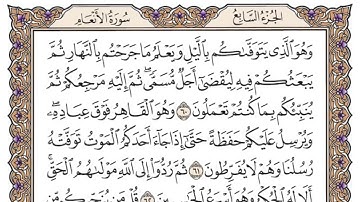 سُورَةُ الأَنْعَامِ الجُزْءُ السَّابِعُ
وَهُوَ ٱلَّذِى يَتَوَفَّىٰكُم بِٱلَّيْلِ وَيَعْلَمُ مَا جَرَحْتُم بِٱلنَّهَارِ ثُمَّ
يَبْعَثُكُمْ فِيهِ لِيُقْضَىٰٓ أَجَلٌ مُّسَمًّى ۖ ثُمَّ إِلَيْهِ مَرْجِعُكُمْ ثُمَّ
يُنَبِّئُكُم بِمَا كُنتُمْ تَعْمَلُونَ ٦٠ وَهُوَ ٱلْقَاهِرُ فَوْقَ عِبَادِهِۦ ۖ
وَيُرْسِلُ عَلَيْكُمْ حَفَظَةً حَتَّىٰٓ إِذَا جَآءَ أَحَدَكُمُ ٱلْمَوْتُ تَوَفَّتْهُ
رُسُلُنَا وَهُمْ لَا يُفَرِّطُونَ ٦١ ثُمَّ رُدُّوٓا۟ إِلَى ٱللَّهِ مَوْلَىٰهُمُ ٱلْحَقِّ ۚ
أَلَا لَهُ ٱلْحُكْمُ وَهُوَ أَسْرَعُ ٱلْحَٰسِبِينَ ٦٢ قُلْ مَن يُنَجِّيكُم مِّن